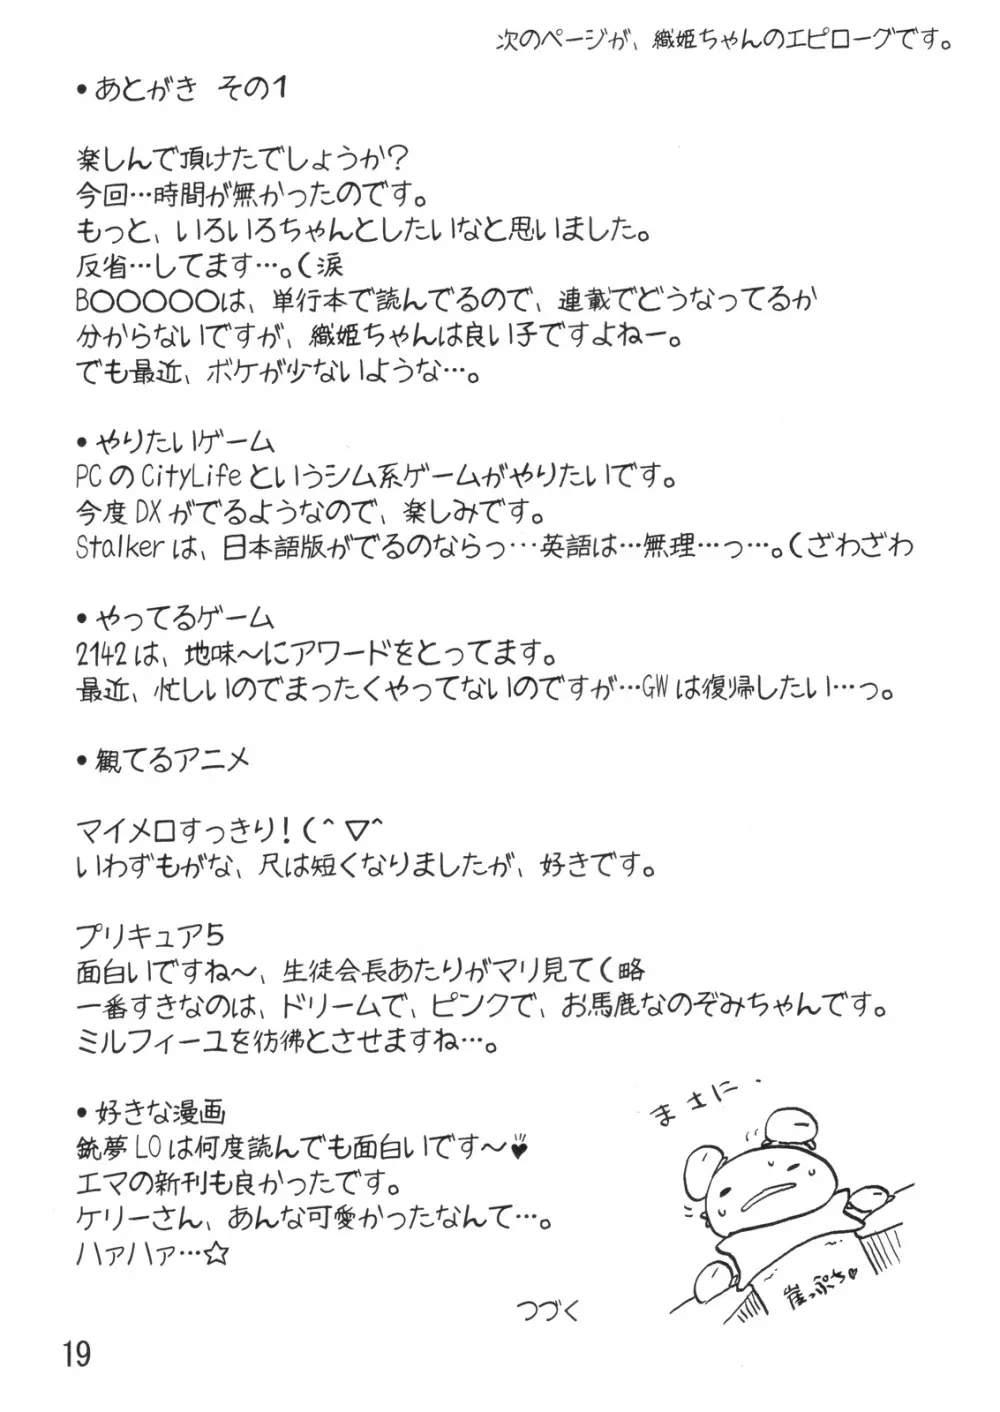 次のページが、織姫ちゃんのエピローグです。
•あとがき その1
楽しんで頂けたでしょうか?
今回…時間が無かったのです。
もっと、いろいろちゃんとしたいなと思いました。
反省…してます…。(涙
B○○○○○は、単行本で読んでるので、連載でどうなってるか
分からないですが、織姫ちゃんは良い子ですよねー。
でも最近、ボケが少ないような…。
•やりたいゲーム
PCのCityLifeというシム系ゲームがやりたいです。
今度DXがでるようなので、楽しみです。
Stalkerは、日本語版がでるのならっ…英語は…無理…っ…。(ざわざわ
•やってるゲーム
2142は、地味〜にアワードをとってます。
最近、忙しいのでまったくやってないのですが…GWは復帰したい…っ。
•観てるアニメ
マイメロすっきり!(^▽^
いわずもがな、尺は短くなりましたが、好きです。
プリキュア5
面白いですね〜、生徒会長あたりがマリ見て(略
一番すきなのは、ドリームで、ピンクで、お馬鹿なのぞみちゃんです。
ミルフィーユを彷彿とさせますね…。
•好きな漫画
銃夢LOは何度読んでも面白いです〜♥
エマの新刊も良かったです。
ケリーさん、あんな可愛かったなんて…。
ハァハァ…☆
まさに・
崖っぷち♥
つづく
19